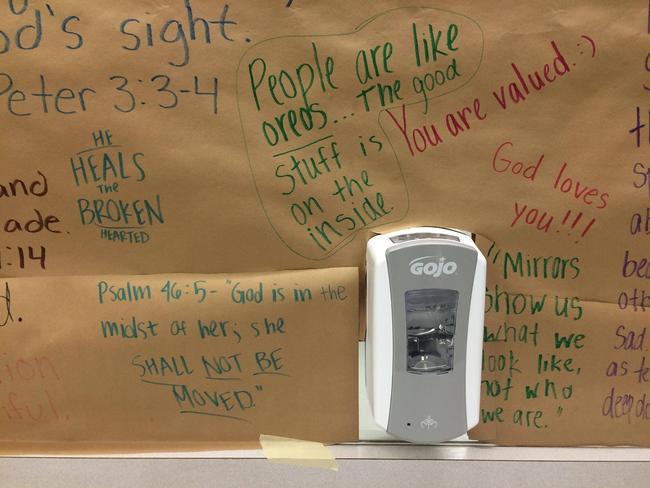 od's sight.
Peter 3:3-4
HE
HEALS
the
BROKEN
HEARTED
and
ade.
:14
People are like
oreos... The good
stuff is
on the
inside.
You are valued. :)
God loves
you!!!
GOJO
"Mirrors
show us
what we
look like,
not who
we are."
Psalm 46:5- "God is in the
midst of her; she
SHALL NOT BE
MOVED."
d.
ion
ful.
Sad.